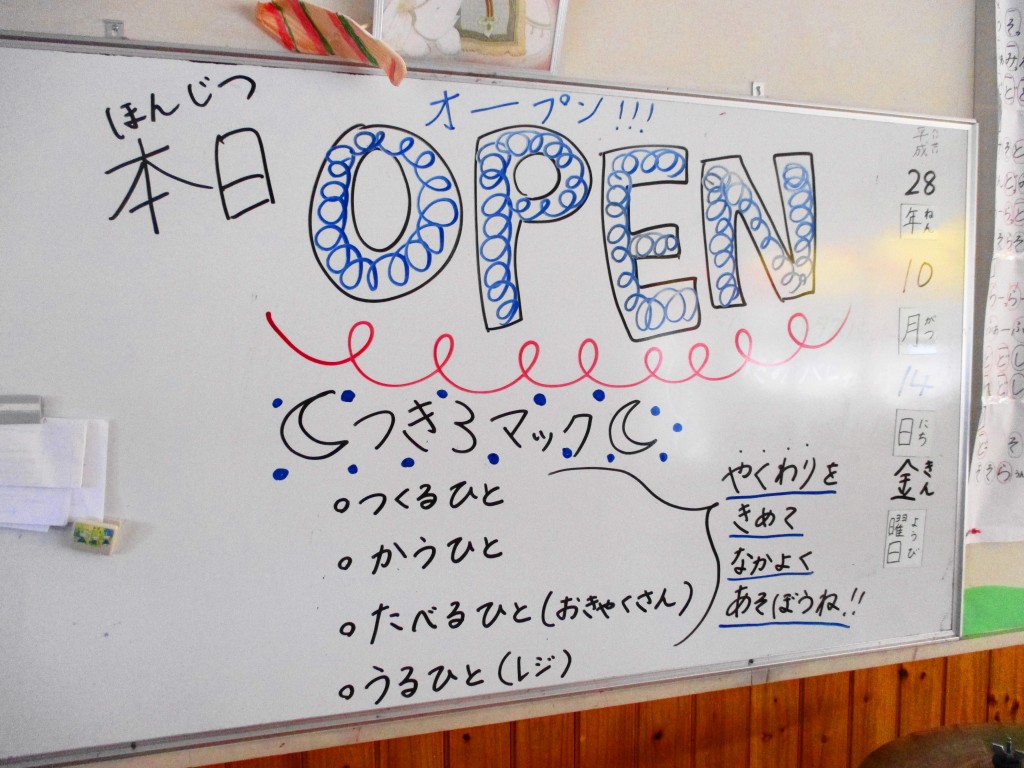 ほんじつ
本日
オープン!!!
OPEN
つきろマック
○つくるひと
○かうひと
○たべるひと(おきゃくさん)
○うるひと(レジ)
やくわりを
きめて
なかよく
あそぼうね!!
平成
28
年 ねん
10
月 がつ
14
日 にち
金 きん
曜日 ようび